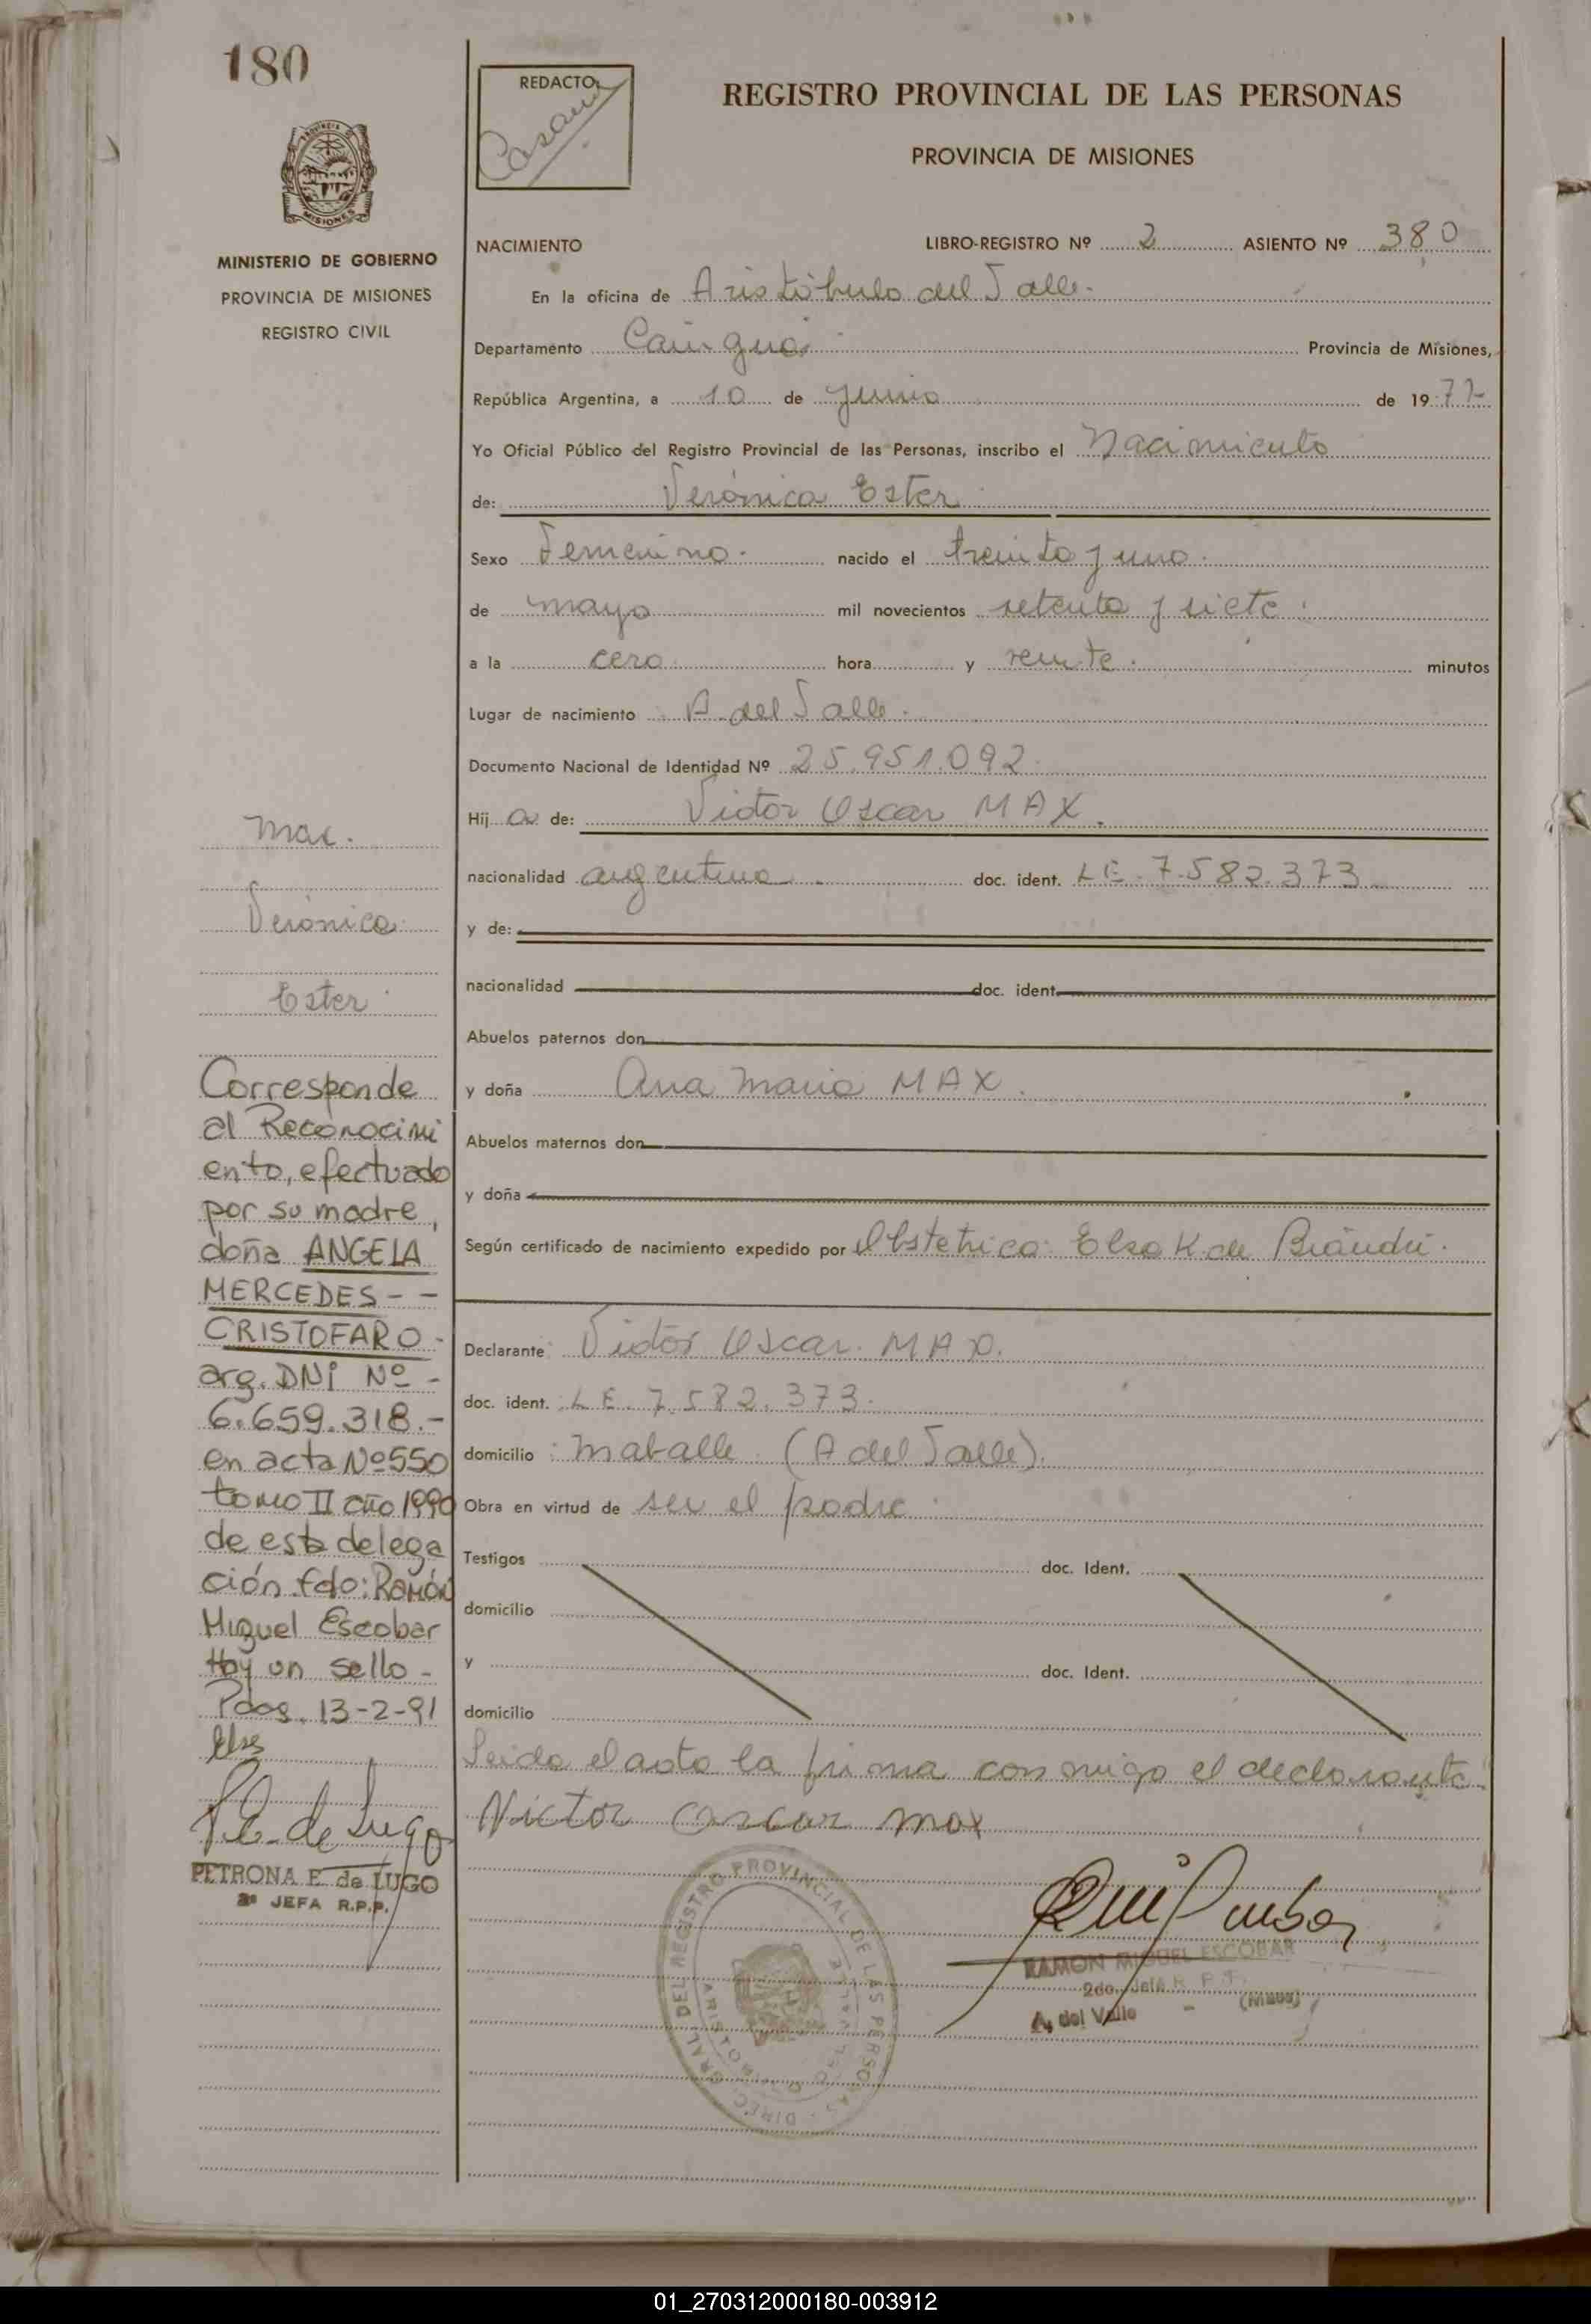 180
PROVINCIA DE
MISIONES
MINISTERIO DE GOBIERNO
PROVINCIA DE MISIONES
REGISTRO CIVIL
REDACTO
REGISTRO PROVINCIAL DE LAS PERSONAS
PROVINCIA DE MISIONES
NACIMIENTO LIBRO-REGISTRO Nº 2 ASIENTO Nº 380
En la oficina de Aristóbulo del Valle.
Departamento Cainguás Provincia de Misiones,
República Argentina, a 10 de junio de 1977
Yo Oficial Público del Registro Provincial de las Personas, inscribo el Nacimiento
de: Verónica Ester
Sexo Femenino. nacido el treinta y uno.
de mayo mil novecientos setenta y siete.
a la cero hora y veinte. minutos
Lugar de nacimiento A. del Valle.
Documento Nacional de Identidad Nº 25.951.092
Hij a de: Victor Oscar MAX.
nacionalidad argentina doc. ident. LE. 7.582.373
y de:
nacionalidad doc. ident.
Abuelos paternos don
y doña Ana Maria MAX.
Abuelos maternos don
y doña
Según certificado de nacimiento expedido por Obstetrica: Elsa K. de
Declarante: Victor Oscar. MAX.
doc. ident. LE. 7.582.373.
domicilio : (A del Valle).
Obra en virtud de ser el padre
Testigos doc. Ident.
domicilio
y doc. Ident.
domicilio
Leida el acta la firma conmigo el declarante.
Victor Oscar Max
DIREC. GRAL. DEL REGISTRO PROVINCIAL DE LAS PERSONAS
ARISTOBULO DEL VALLE
RAMON MIGUEL ESCOBAR
2do. Jefe R. P. P.
A. del Valle - (Mnes)
Max.
Verónica
Ester
Corresponde
al Reconocimi
ento, efectuado
por su madre,
doña ANGELA
MERCEDES - -
CRISTOFARO -
arg. DNI Nº -
6.659.318.-
en acta Nº550
tomo II año 1990
de esta delega
ción fdo: Ramón
Miguel Escobar
Hay un sello -
Pdas. 13-2-91
P.E. de Lugo
PETRONA E. de LUGO
2ª JEFA R.P.P.
01_270312000180-003912